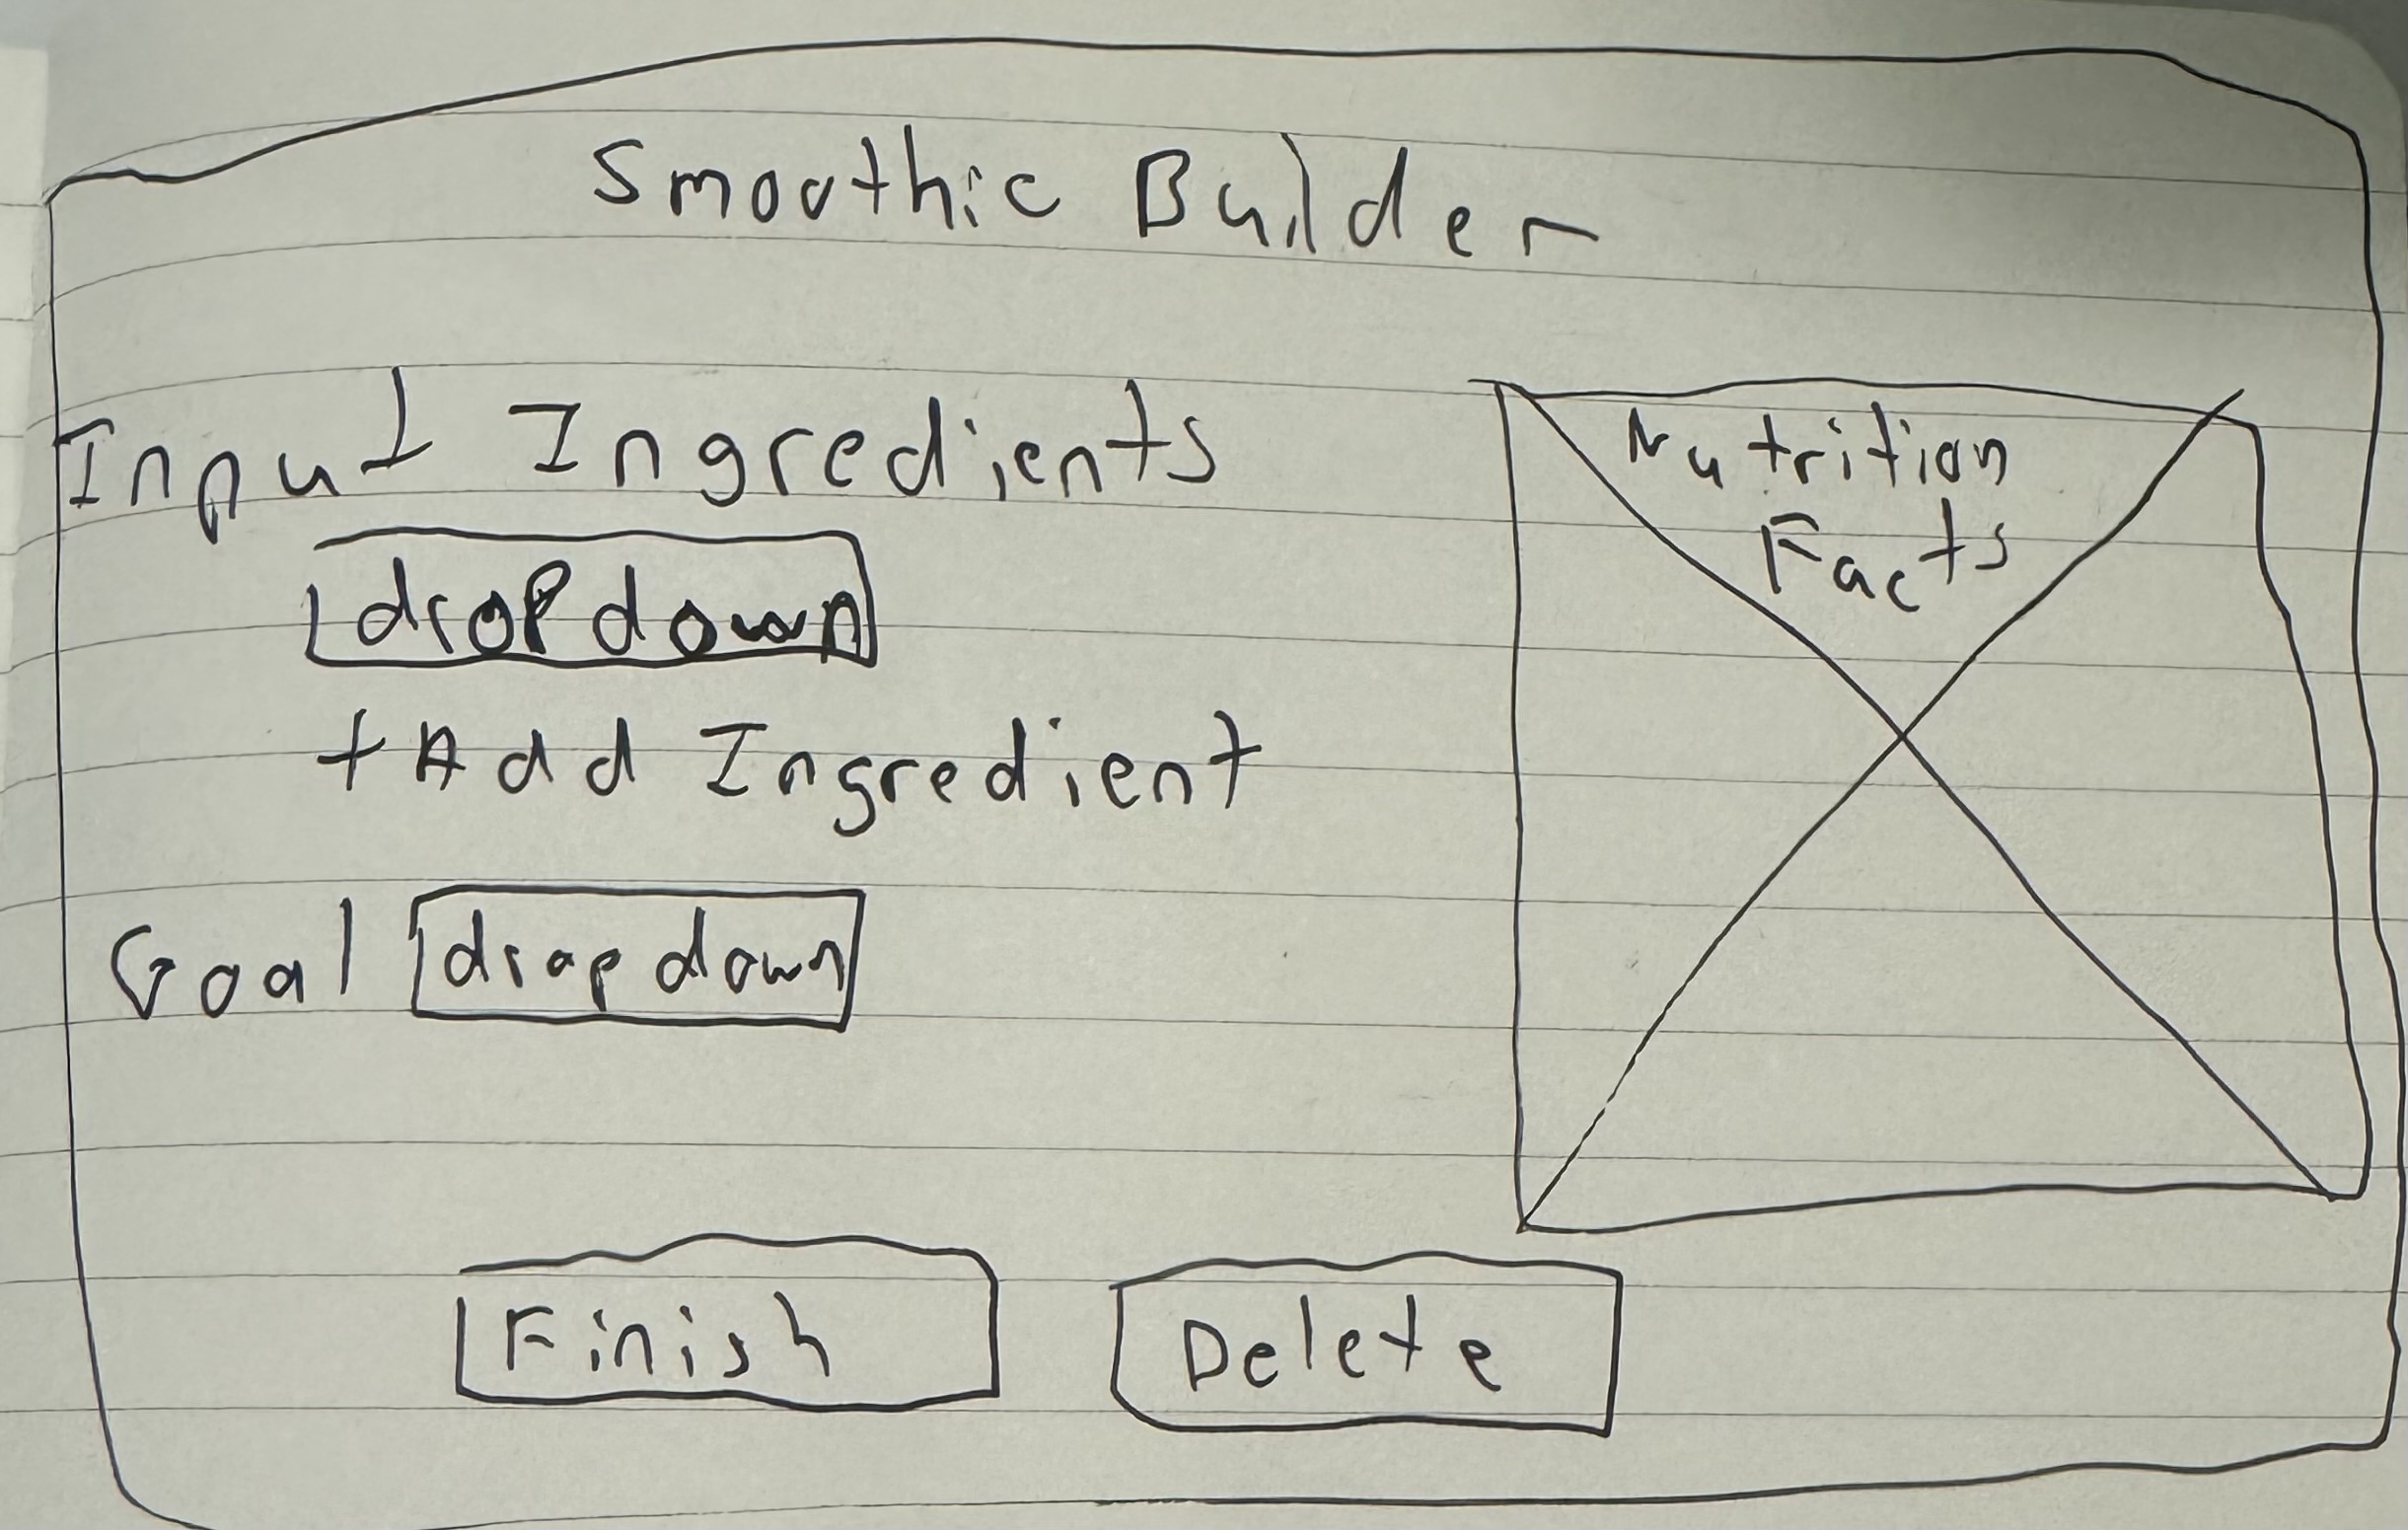 Smoothie Builder
Input Ingredients
dropdown
+ Add Ingredient
Goal dropdown
Nutrition
Facts
Finish
Delete